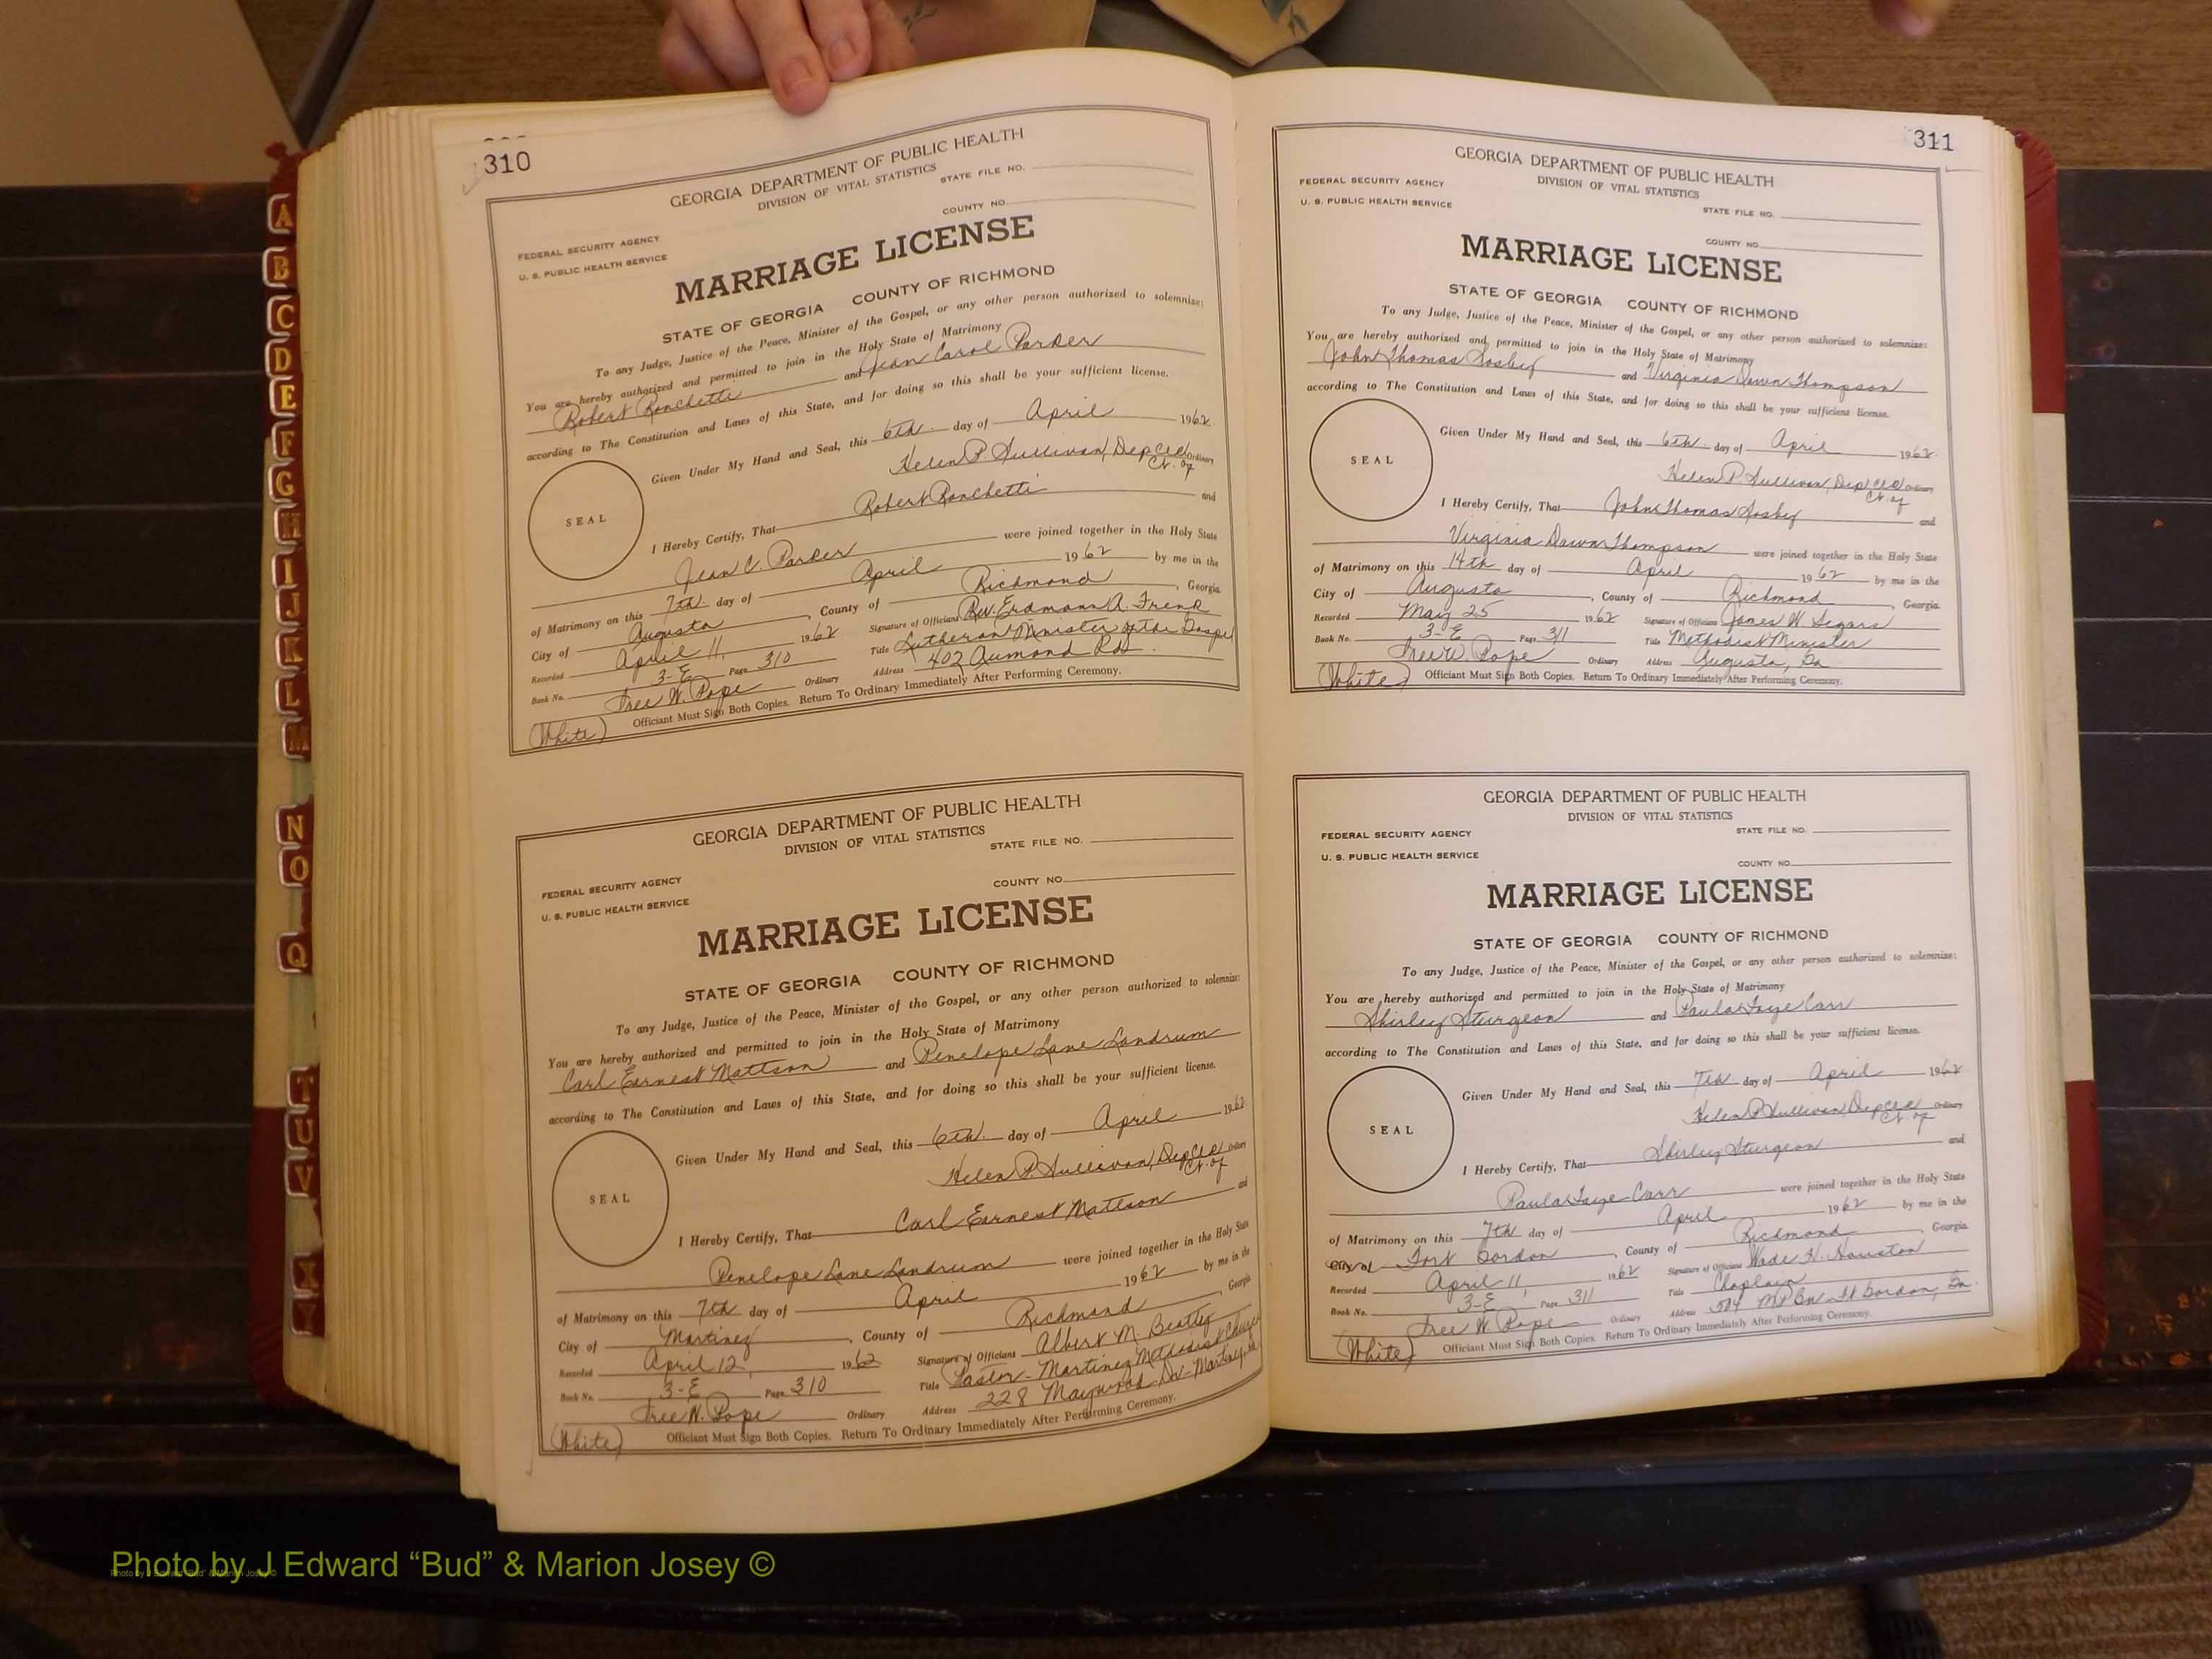 A
B
C
D
E
F
G
H
I
J
K
L
M
N
O
Q
T
U
V
X
Y
310
GEORGIA DEPARTMENT OF PUBLIC HEALTH
DIVISION OF VITAL STATISTICS
STATE FILE NO.
COUNTY NO.
FEDERAL SECURITY AGENCY
U. S. PUBLIC HEALTH SERVICE
MARRIAGE LICENSE
STATE OF GEORGIA COUNTY OF RICHMOND
To any Judge, Justice of the Peace, Minister of the Gospel, or any other person authorized to solemnize:
You are hereby authorized and permitted to join in the Holy State of Matrimony
Robert Ronchetti and Jean Carol Parker
according to The Constitution and Laws of this State, and for doing so this shall be your sufficient license.
Given Under My Hand and Seal, this 6th day of April 1962.
Helen P. Sullivan, Dep Clk Ordinary
Ct. of
SEAL
I Hereby Certify, That Robert Ronchetti and
Jean C. Parker were joined together in the Holy State
of Matrimony on this 7th day of April 1962 by me in the
City of Augusta, County of Richmond, Georgia.
Recorded April 11, 1962 Signature of Officiant Rev. Erdmann A. Frenk
Book No. 3-E Page 310 Title Lutheran Minister of the Gospel
Free W. Pope Ordinary Address 402 Aumond Rd.
(White) Officiant Must Sign Both Copies. Return To Ordinary Immediately After Performing Ceremony.
GEORGIA DEPARTMENT OF PUBLIC HEALTH
DIVISION OF VITAL STATISTICS
STATE FILE NO.
COUNTY NO.
FEDERAL SECURITY AGENCY
U. S. PUBLIC HEALTH SERVICE
MARRIAGE LICENSE
STATE OF GEORGIA COUNTY OF RICHMOND
To any Judge, Justice of the Peace, Minister of the Gospel, or any other person authorized to solemnize:
You are hereby authorized and permitted to join in the Holy State of Matrimony
Carl Earnest Mattson and Penelope Lane Landrum
according to The Constitution and Laws of this State, and for doing so this shall be your sufficient license.
Given Under My Hand and Seal, this 6th day of April 1962
Helen P. Sullivan, Dep Clk Ordinary
Ct. of
SEAL
I Hereby Certify, That Carl Earnest Mattson and
Penelope Lane Landrum were joined together in the Holy State
of Matrimony on this 7th day of April 1962 by me in the
City of Martinez, County of Richmond, Georgia
Recorded April 12, 1962 Signature of Officiant Albert M. Beatty
Book No. 3-E Page 310 Title Pastor - Martinez Methodist Church
Free W. Pope Ordinary Address 228 Maywood Dr - Martinez
(White) Officiant Must Sign Both Copies. Return To Ordinary Immediately After Performing Ceremony.
311
GEORGIA DEPARTMENT OF PUBLIC HEALTH
FEDERAL SECURITY AGENCY
U. S. PUBLIC HEALTH SERVICE
DIVISION OF VITAL STATISTICS
STATE FILE NO.
COUNTY NO.
MARRIAGE LICENSE
STATE OF GEORGIA COUNTY OF RICHMOND
To any Judge, Justice of the Peace, Minister of the Gospel, or any other person authorized to solemnize:
You are hereby authorized and permitted to join in the Holy State of Matrimony
John Thomas and Virginia Dawn Thompson
according to The Constitution and Laws of this State, and for doing so this shall be your sufficient license.
Given Under My Hand and Seal, this 6th day of April 1962.
Helen P. Sullivan, Dep Clk Ordinary
Ct. of
SEAL
I Hereby Certify, That John Thomas and
Virginia Dawn Thompson were joined together in the Holy State
of Matrimony on this 14th day of April 1962 by me in the
City of Augusta, County of Richmond, Georgia.
Recorded May 25 1962 Signature of Officiant James W. Segars
Book No. 3-E Page 311 Title Methodist Minister
Free W. Pope Ordinary Address Augusta, Ga
(White) Officiant Must Sign Both Copies. Return To Ordinary Immediately After Performing Ceremony.
GEORGIA DEPARTMENT OF PUBLIC HEALTH
DIVISION OF VITAL STATISTICS
FEDERAL SECURITY AGENCY
STATE FILE NO.
U. S. PUBLIC HEALTH SERVICE
COUNTY NO.
MARRIAGE LICENSE
STATE OF GEORGIA COUNTY OF RICHMOND
To any Judge, Justice of the Peace, Minister of the Gospel, or any other person authorized to solemnize:
You are hereby authorized and permitted to join in the Holy State of Matrimony
Shirley Sturgeon and Paula Faye Carr
according to The Constitution and Laws of this State, and for doing so this shall be your sufficient license.
Given Under My Hand and Seal, this 7th day of April 1962
Helen P. Sullivan, Dep Clk Ordinary
Ct. of
SEAL
I Hereby Certify, That Shirley Sturgeon and
Paula Faye Carr were joined together in the Holy State
of Matrimony on this 7th day of April 1962 by me in the
City of Fort Gordon, County of Richmond, Georgia.
Recorded April 11, 1962 Signature of Officiant Wade H. Houston
Book No. 3-E Page 311 Title Chaplain
Free W. Pope Ordinary Address 504 MP Bn Ft Gordon, Ga.
(White) Officiant Must Sign Both Copies. Return To Ordinary Immediately After Performing Ceremony.
Photo by J Edward “Bud” & Marion Josey ©
Photo by J Edward “Bud” & Marion Josey ©